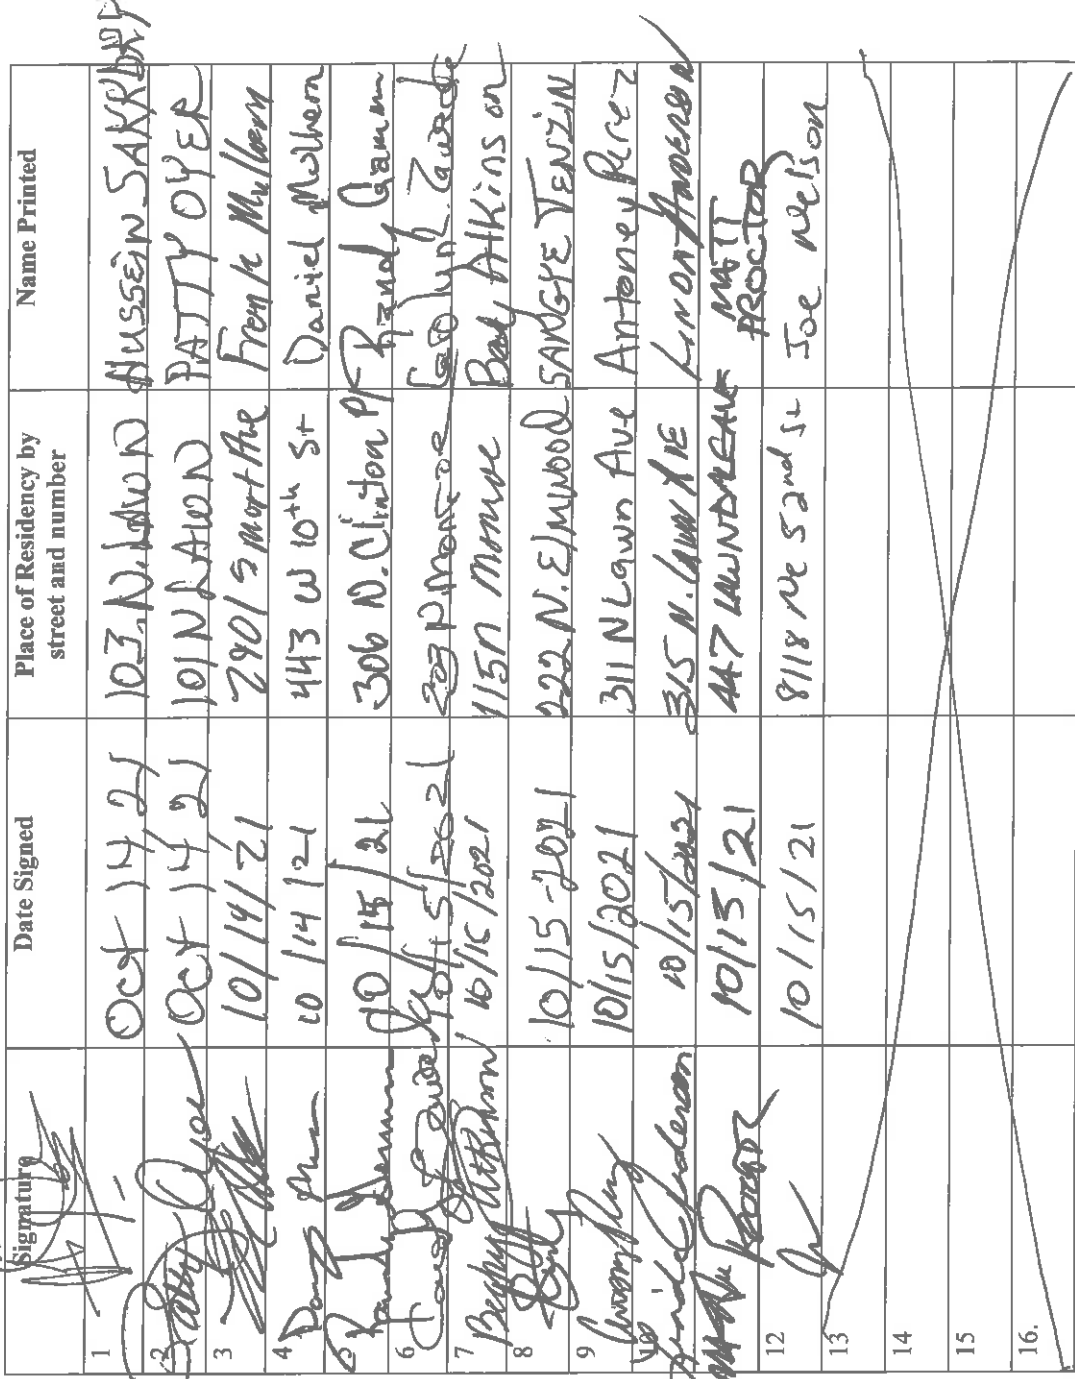 Signature Date Signed Place of Residency by street and number Name Printed
1 Oct 14 21 103 N. LAWN Hussein
2 Patty Oyer Oct 14 21 101 N LAWN PATTY OYER
3 10/14/21 2901 S Mort Ave Frank Mulham
4 10/14/21 443 W 10th St Daniel Mulhern
5 10/15/21 306 N. Clinton Pl Randy
6 10/15/2021 203 N. Monroe
7 Atkinson 10/15/2021 115 N Monroe Becky Atkinson
8 10/15-2021 222 N. Elmwood SANGYE TENZIN
9 10/15/2021 311 N Lawn Ave Antoney Perez
10 Linda Anderson 10/15/2021 315 N. Lawn AVE LINDA ANDERSON
Proctor 10/15/21 447 LAWNDALE AVE MATT PROCTOR
12 10/15/21 8118 Ne 52nd St Joe Nelson
13
14
15
16.